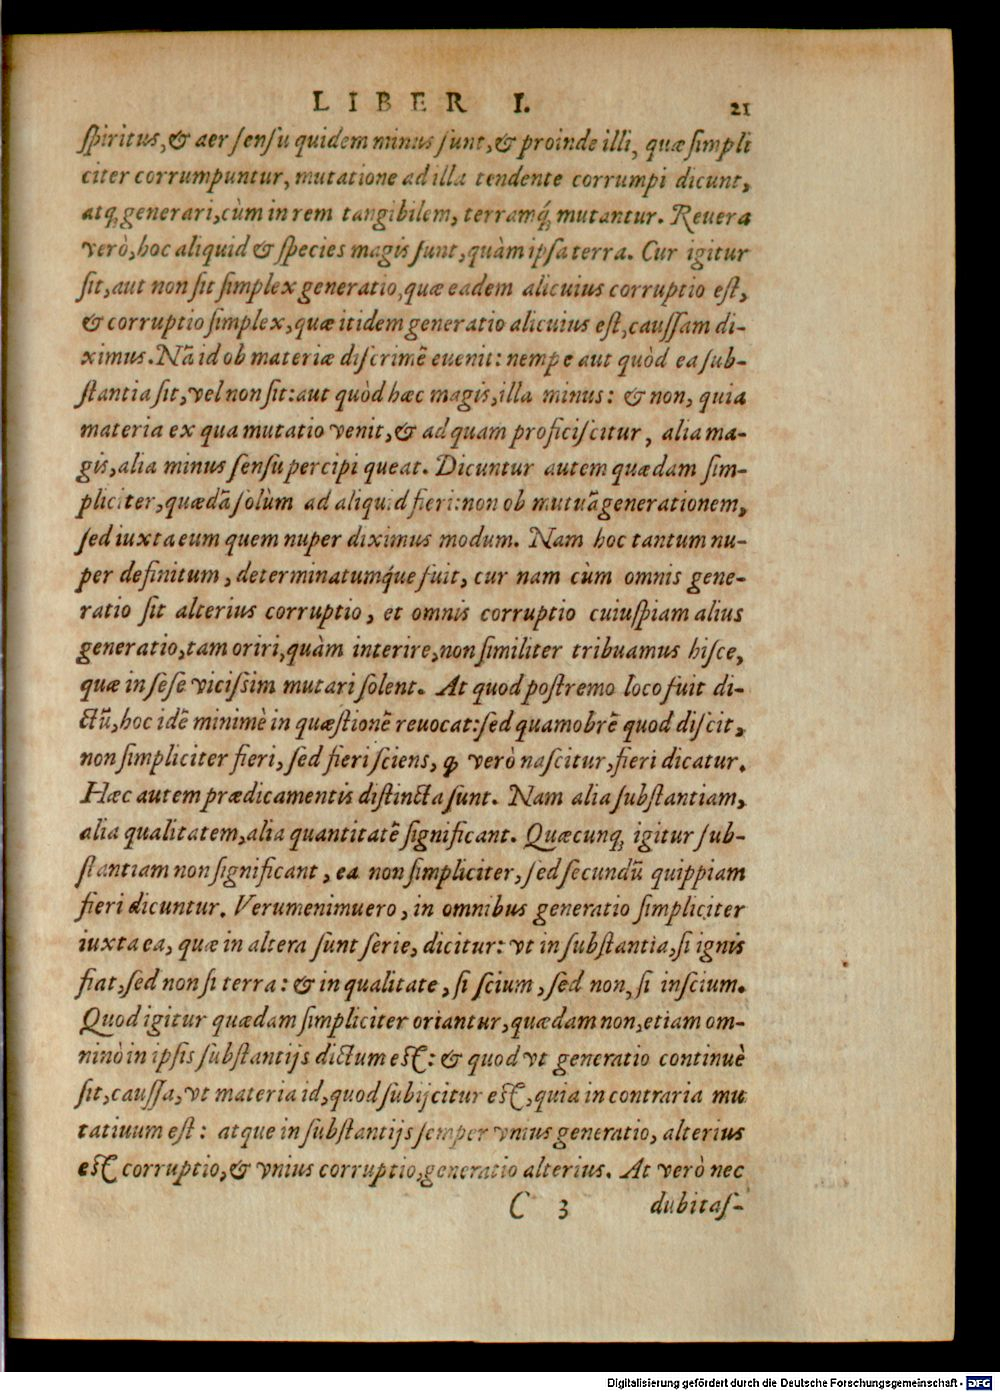 LIBER I. 21
ſpiritus, & aer ſenſu quidem minus ſunt, & proinde illi, quæ ſimpli
citer corrumpuntur, mutatione ad illa tendente corrumpi dicunt,
atq́; generari, cùm in rem tangibilem, terramq́; mutantur. Reuera
verò, hoc aliquid & ſpecies magis ſunt, quàm ipſa terra. Cur igitur
ſit, aut non ſit ſimplex generatio, quæ eadem alicuius corruptio eſt,
& corruptio ſimplex, quæ itidem generatio alicuius eſt, cauſſam di-
ximus. Nā id ob materiæ diſcrimē euenit: nempe aut quòd ea ſub-
ſtantia ſit, vel non ſit: aut quòd hæc magis, illa minus: & non, quia
materia ex qua mutatio venit, & ad quam proficiſcitur, alia ma-
gis, alia minus ſenſu percipi queat. Dicuntur autem quædam ſim-
pliciter, quædā ſolùm ad aliquid fieri: non ob mutuā generationem,
ſed iuxta eum quem nuper diximus modum. Nam hoc tantum nu-
per definitum, determinatumq́ue fuit, cur nam cùm omnis gene-
ratio ſit alterius corruptio, et omnis corruptio cuiuſpiam alius
generatio, tam oriri, quàm interire, non ſimiliter tribuamus hiſce,
quæ in ſeſe viciſsim mutari ſolent. At quod poſtremo loco fuit di-
ctū, hoc idē minimè in quæſtionē reuocat: ſed quamobrē quod diſcit,
non ſimpliciter fieri, ſed fieri ſciens, ꝙ verò naſcitur, fieri dicatur.
Hæc autem prædicamentis diſtincta ſunt. Nam alia ſubſtantiam,
alia qualitatem, alia quantitatē ſignificant. Quæcunq; igitur ſub-
ſtantiam non ſignificant, ea non ſimpliciter, ſed ſecundū quippiam
fieri dicuntur. Verumenimuero, in omnibus generatio ſimpliciter
iuxta ea, quæ in altera ſunt ſerie, dicitur: vt in ſubſtantia, ſi ignis
fiat, ſed non ſi terra: & in qualitate, ſi ſcium, ſed non, ſi inſcium.
Quod igitur quædam ſimpliciter oriantur, quædam non, etiam om-
ninò in ipſis ſubſtantijs dictum eſt: & quod vt generatio continuè
ſit, cauſſa, vt materia id, quod ſubijcitur eſt, quia in contraria mu
tatiuum eſt: atque in ſubſtantijs ſemper vnius generatio, alterius
eſt corruptio, & vnius corruptio, generatio alterius. At verò nec
C 3 dubitaſ-
Digitalisierung gefördert durch die Deutsche Forschungsgemeinschaft - DFG